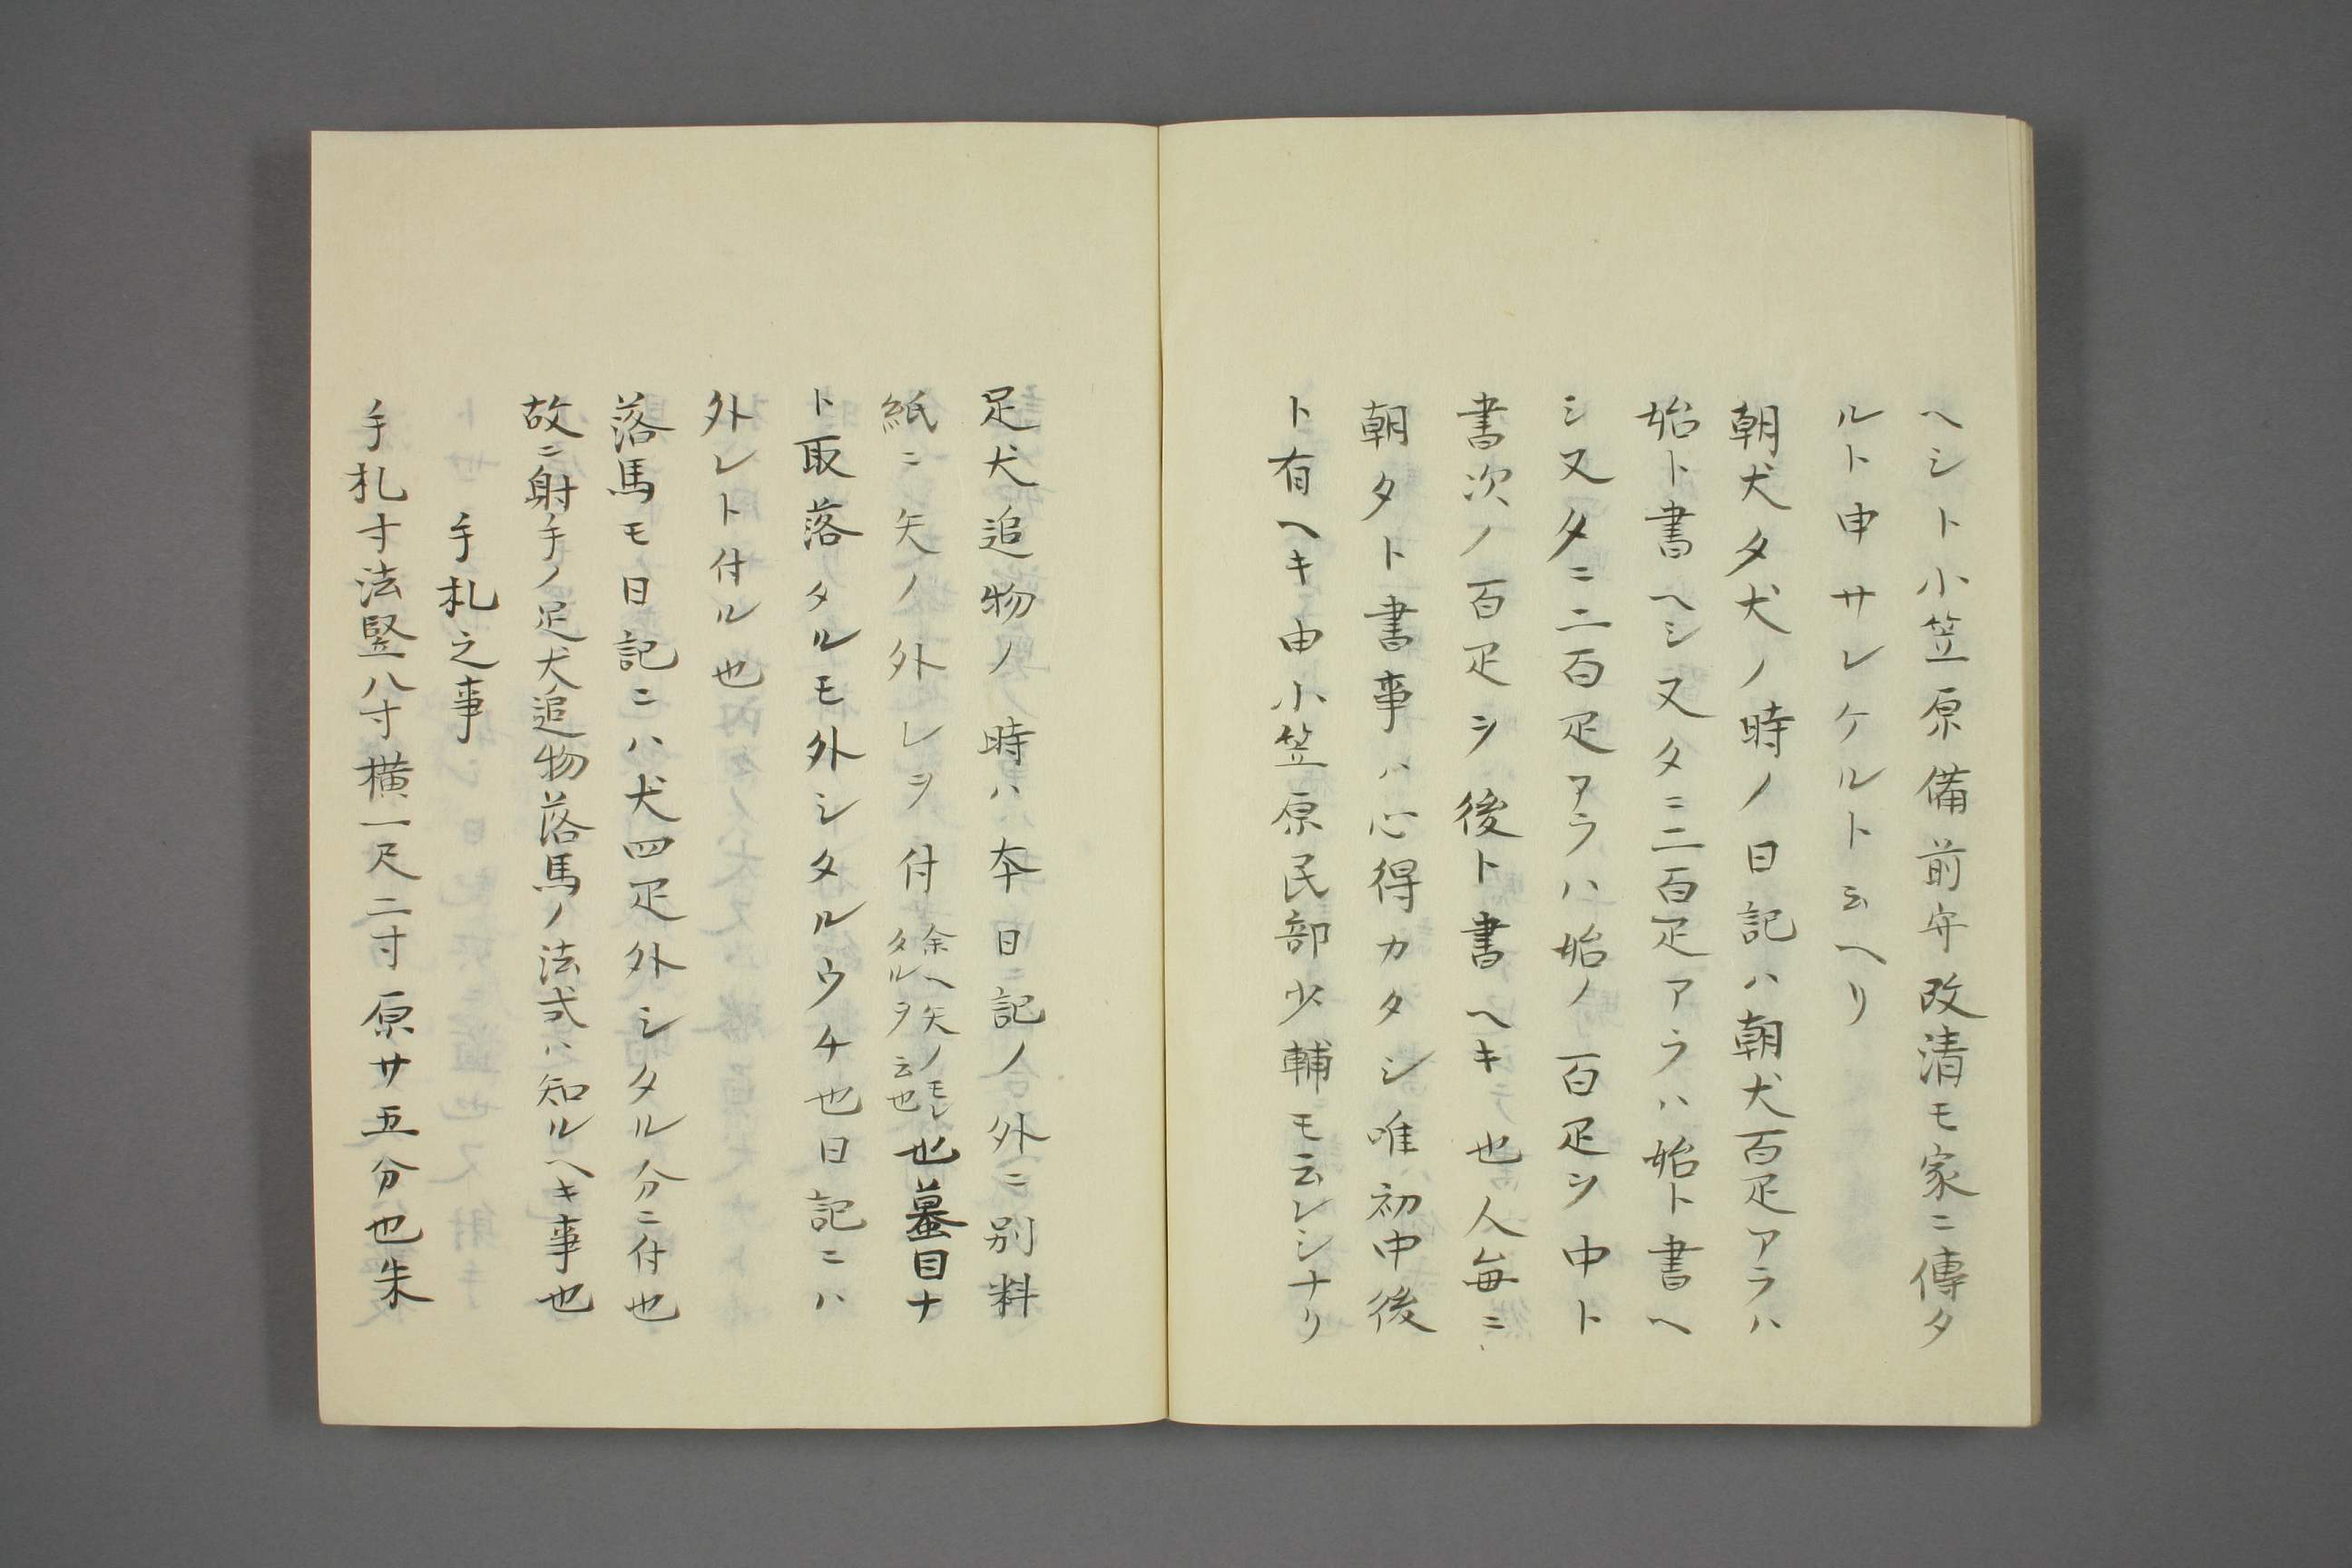 ヘシト小笠原備前守政清モ家ニ傳タ
ルト申サレケルト云ヘリ
朝犬夕犬ノ時ノ日記ハ朝犬百疋アラハ
始ト書ヘシ又夕ニ二百疋アラハ始ト書ヘ
シ又夕ニ二百疋アラハ始ノ百疋ヲ中ト
書次ノ百疋ヲ後ト書ヘキ也人毎ニ
朝夕ト書事ハ心得カタシ唯初中後
ト有ヘキ由小笠原民部少輔モ云レシナリ
足犬追物ノ時ハ本日記ノ外ニ別料
紙ニ矢ノ外レヲ付余ヘ矢ノモレタルヲ云也也蟇目ナ
ト取落タルモ外シタルウチ也日記ニハ
外レト付ル也
落馬モ日記ニハ犬四疋外シタル分ニ付也
故ニ射手ノ足犬追物落馬ノ法式ハ知ルヘキ事也
手札之事
手札寸法竪八寸横一尺二寸原サ五分也朱